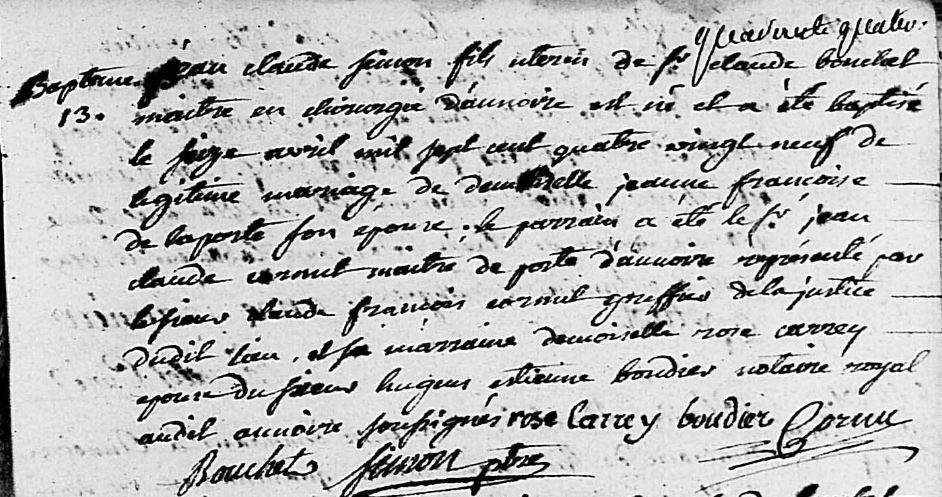 quarante quatre.
Baptême jean claude simon fils uterin de Sr claude bouchet
13. maitre en chirurgie d'annoire est né et a été baptisé
le seize avril mil sept cent quatre vingt neuf de
legitime mariage de demoiselle jeanne francoise
de laporte son épouse. le parrain a été le Sr jean
claude cornut maitre de poste d'annoire représenté par
le sieur claude francois cornut greffier de la justice
dudit lieu, et sa marraine demoiselle rose carrey
epouse du sieur hugues etienne boudier notaire royal
audit annoire soussignés rose Carrey boudier Cornu
Bouchet Simon ptre